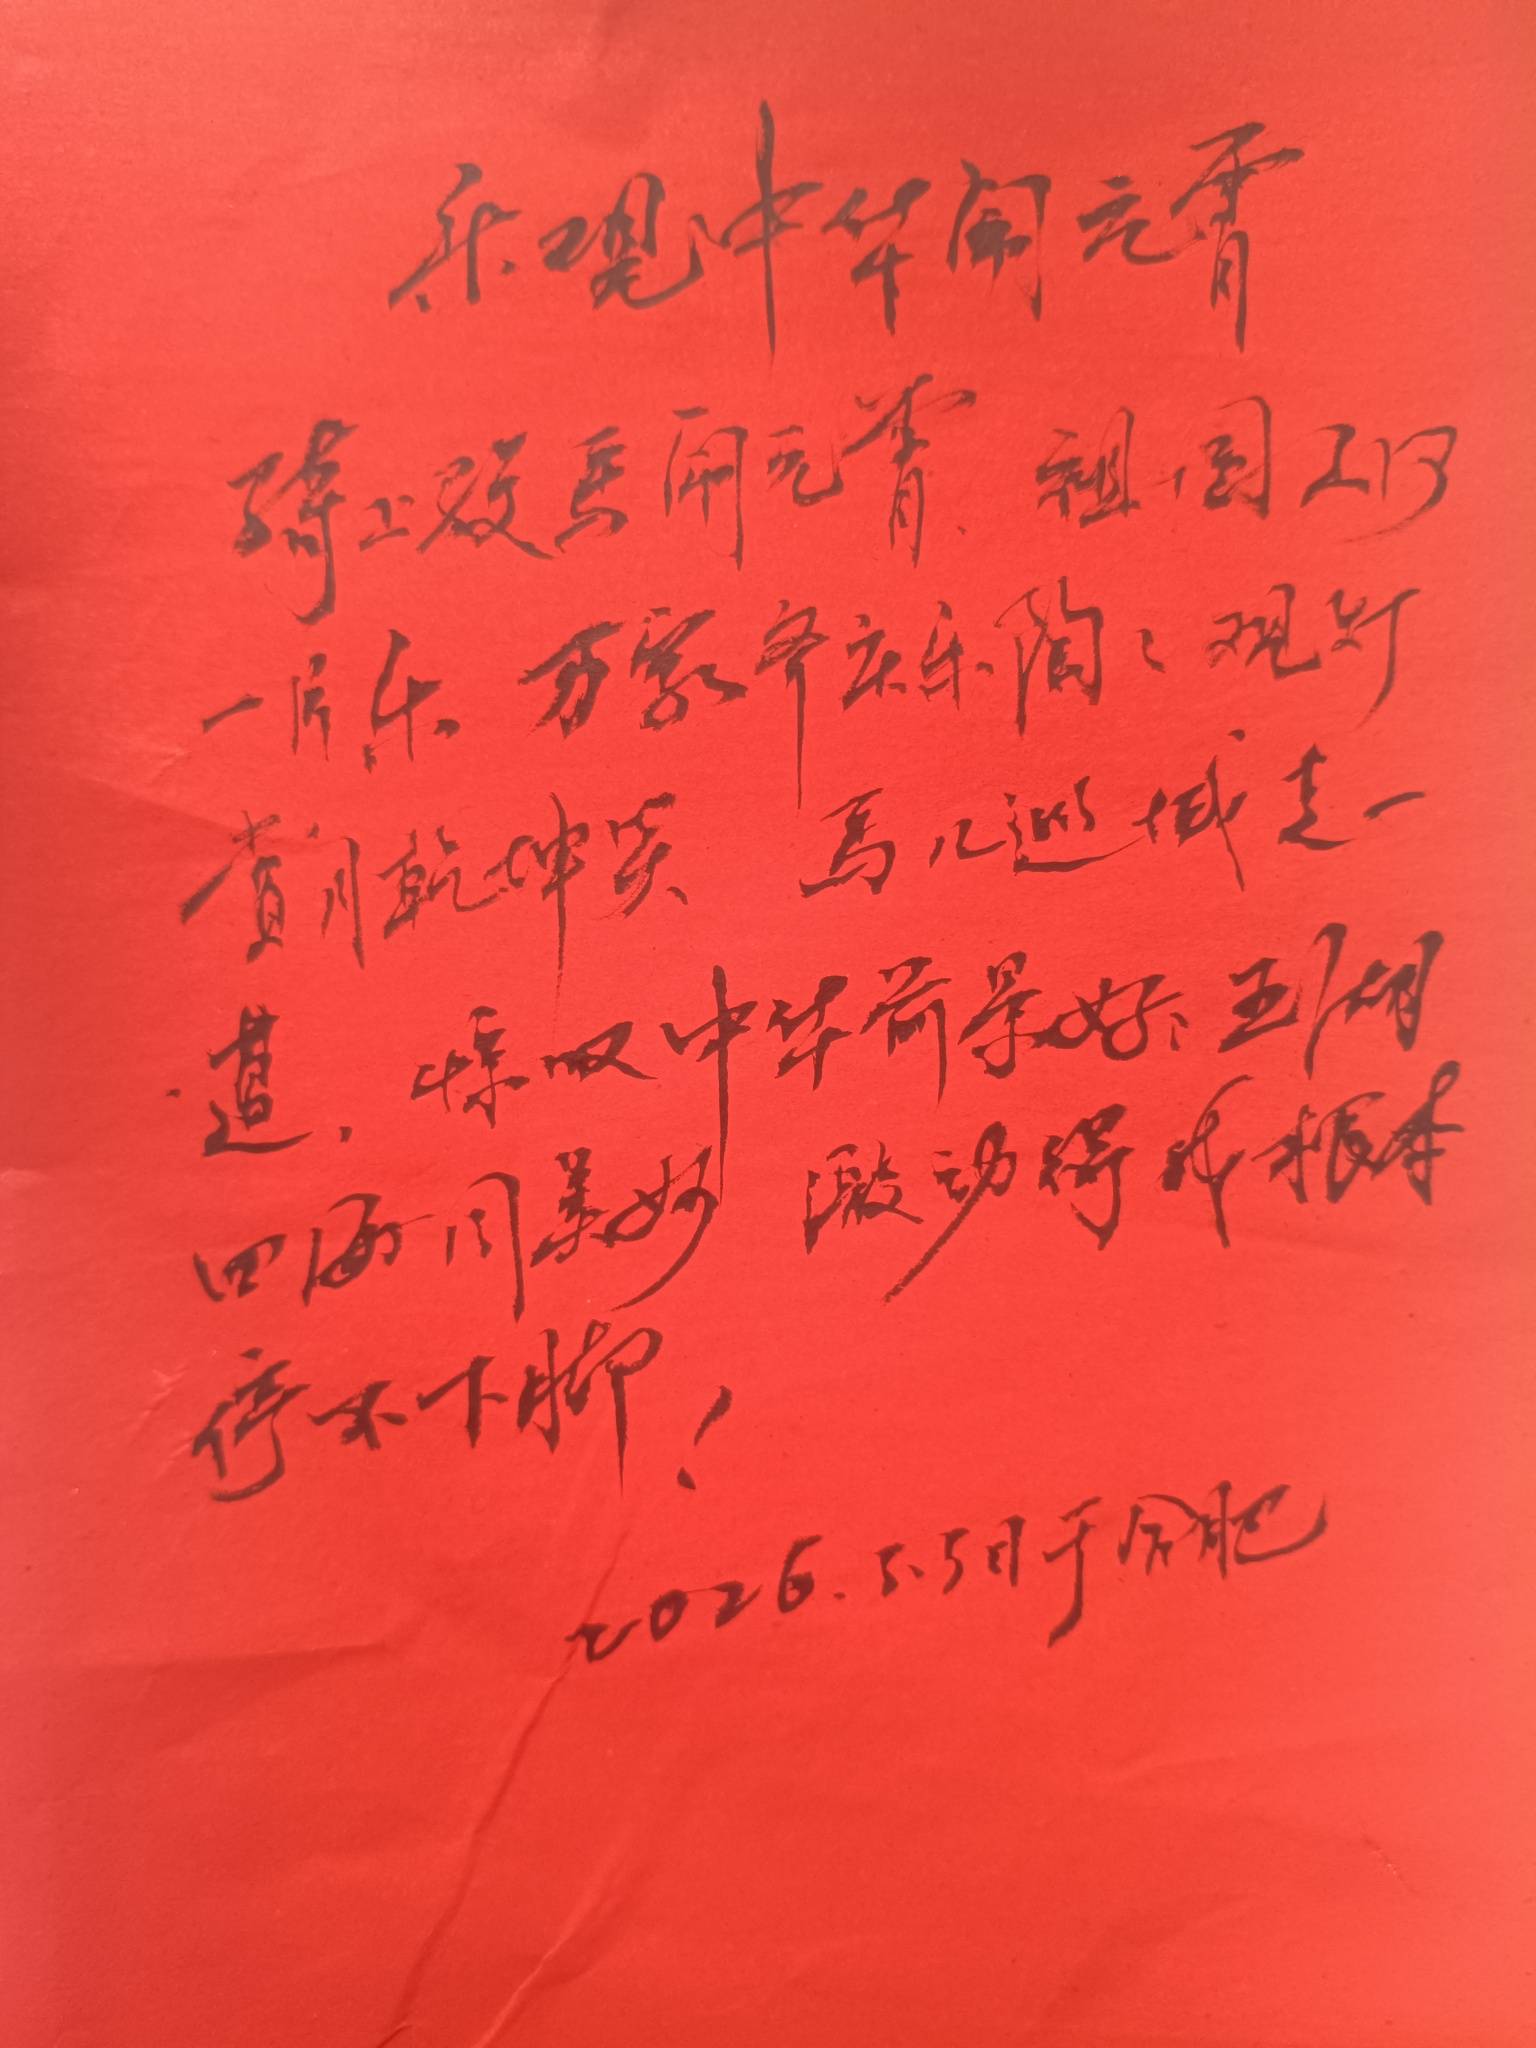 乐观中华闹元宵
骑上骏马闹元宵、祖国江河
一片乐 万家齐庆乐陶々 观灯
赏月乾坤笑 马儿巡城走一
道, 惊叹中华前景好; 五湖
四海同美妙 激动得我根本
停不下脚!
2026.5.5日于合肥